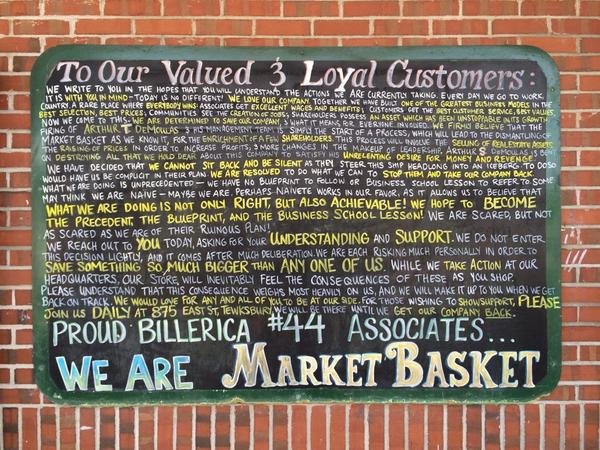 To Our Valued & Loyal Customers:
WE WRITE TO YOU IN THE HOPES THAT YOU WILL UNDERSTAND THE ACTIONS WE ARE CURRENTLY TAKING. EVERY DAY WE GO TO WORK,
IT IS WITH YOU IN MIND - TODAY IS NO DIFFERENT! WE LOVE OUR COMPANY. TOGETHER WE HAVE BUILT ONE OF THE GREATEST BUSINESS MODELS IN THE
COUNTRY. A RARE PLACE WHERE EVERYBODY WINS: ASSOCIATES GET EXCELLENT WAGES AND BENEFITS, CUSTOMERS GET THE BEST CUSTOMER SERVICE, BEST VALUES,
BEST SELECTION, BEST PRICES; COMMUNITIES SEE THE CREATION OF JOBS; SHAREHOLDERS POSSESS AN ASSET WHICH HAS BEEN UNSTOPPABLE IN ITS GROWTH.
NOW WE COME TO THIS: WE ARE DETERMINED TO SAVE OUR COMPANY, & WHAT IT MEANS FOR EVERYONE INVOLVED. WE FIRMLY BELIEVE THAT THE
FIRING OF ARTHUR T DEMOULAS & HIS MANAGEMENT TEAM IS SIMPLY THE START OF A PROCESS, WHICH WILL LEAD TO THE DISMANTLING OF
MARKET BASKET AS WE KNOW IT, FOR THE ENRICHMENT OF A FEW SHAREHOLDERS. THIS PROCESS WILL INVOLVE THE SELLING OF REAL ESTATE ASSETS,
THE RAISING OF PRICES IN ORDER TO INCREASE PROFITS, & MORE CHANGES IN THE MAKEUP OF LEADERSHIP. ARTHUR S. DEMOULAS IS BENT
ON DESTROYING ALL THAT WE HOLD DEAR ABOUT THIS COMPANY TO SATISFY HIS UNRELENTING DESIRE FOR MONEY AND REVENGE.
WE HAVE DECIDED THAT WE CANNOT SIT BACK AND BE SILENT AS THEY STEER THIS SHIP HEADLONG INTO AN ICEBERG. TO DO SO
WOULD HAVE US BE COMPLICIT IN THEIR PLAN. WE ARE RESOLVED TO DO WHAT WE CAN TO STOP THEM AND TAKE OUR COMPANY BACK.
WHAT WE ARE DOING IS UNPRECEDENTED - WE HAVE NO BLUEPRINT TO FOLLOW OR BUSINESS SCHOOL LESSON TO REFER TO. SOME
MAY THINK WE ARE NAIVE - MAYBE WE ARE. PERHAPS NAIVETE WORKS IN OUR FAVOR, AS IT ALLOWS US TO BELIEVE THAT
WHAT WE ARE DOING IS NOT ONLY RIGHT, BUT ALSO ACHIEVABLE! WE HOPE TO BECOME
THE PRECEDENT, THE BLUEPRINT, AND THE BUSINESS SCHOOL LESSON! WE ARE SCARED, BUT NOT
AS SCARED AS WE ARE OF THEIR RUINOUS PLAN!
WE REACH OUT TO YOU TODAY, ASKING FOR YOUR UNDERSTANDING AND SUPPORT. WE DO NOT ENTER
THIS DECISION LIGHTLY, AND IT COMES AFTER MUCH DELIBERATION. WE ARE EACH RISKING MUCH PERSONALLY IN ORDER TO
SAVE SOMETHING SO MUCH BIGGER THAN ANY ONE OF US. WHILE WE TAKE ACTION AT OUR
HEADQUARTERS, OUR STORE WILL INEVITABLY FEEL THE CONSEQUENCES OF THESE AS YOU SHOP.
PLEASE UNDERSTAND THAT THIS CONSEQUENCE WEIGHS MOST HEAVILY ON US, AND WE WILL MAKE IT UP TO YOU WHEN WE GET
BACK ON TRACK. WE WOULD LOVE FOR ANY AND ALL OF YOU TO BE AT OUR SIDE. FOR THOSE WISHING TO SHOW SUPPORT, PLEASE
JOIN US DAILY AT 875 EAST ST, TEWKSBURY. WE WILL BE THERE UNTIL WE GET OUR COMPANY BACK.
PROUD BILLERICA #44 ASSOCIATES...
WE ARE MARKET BASKET